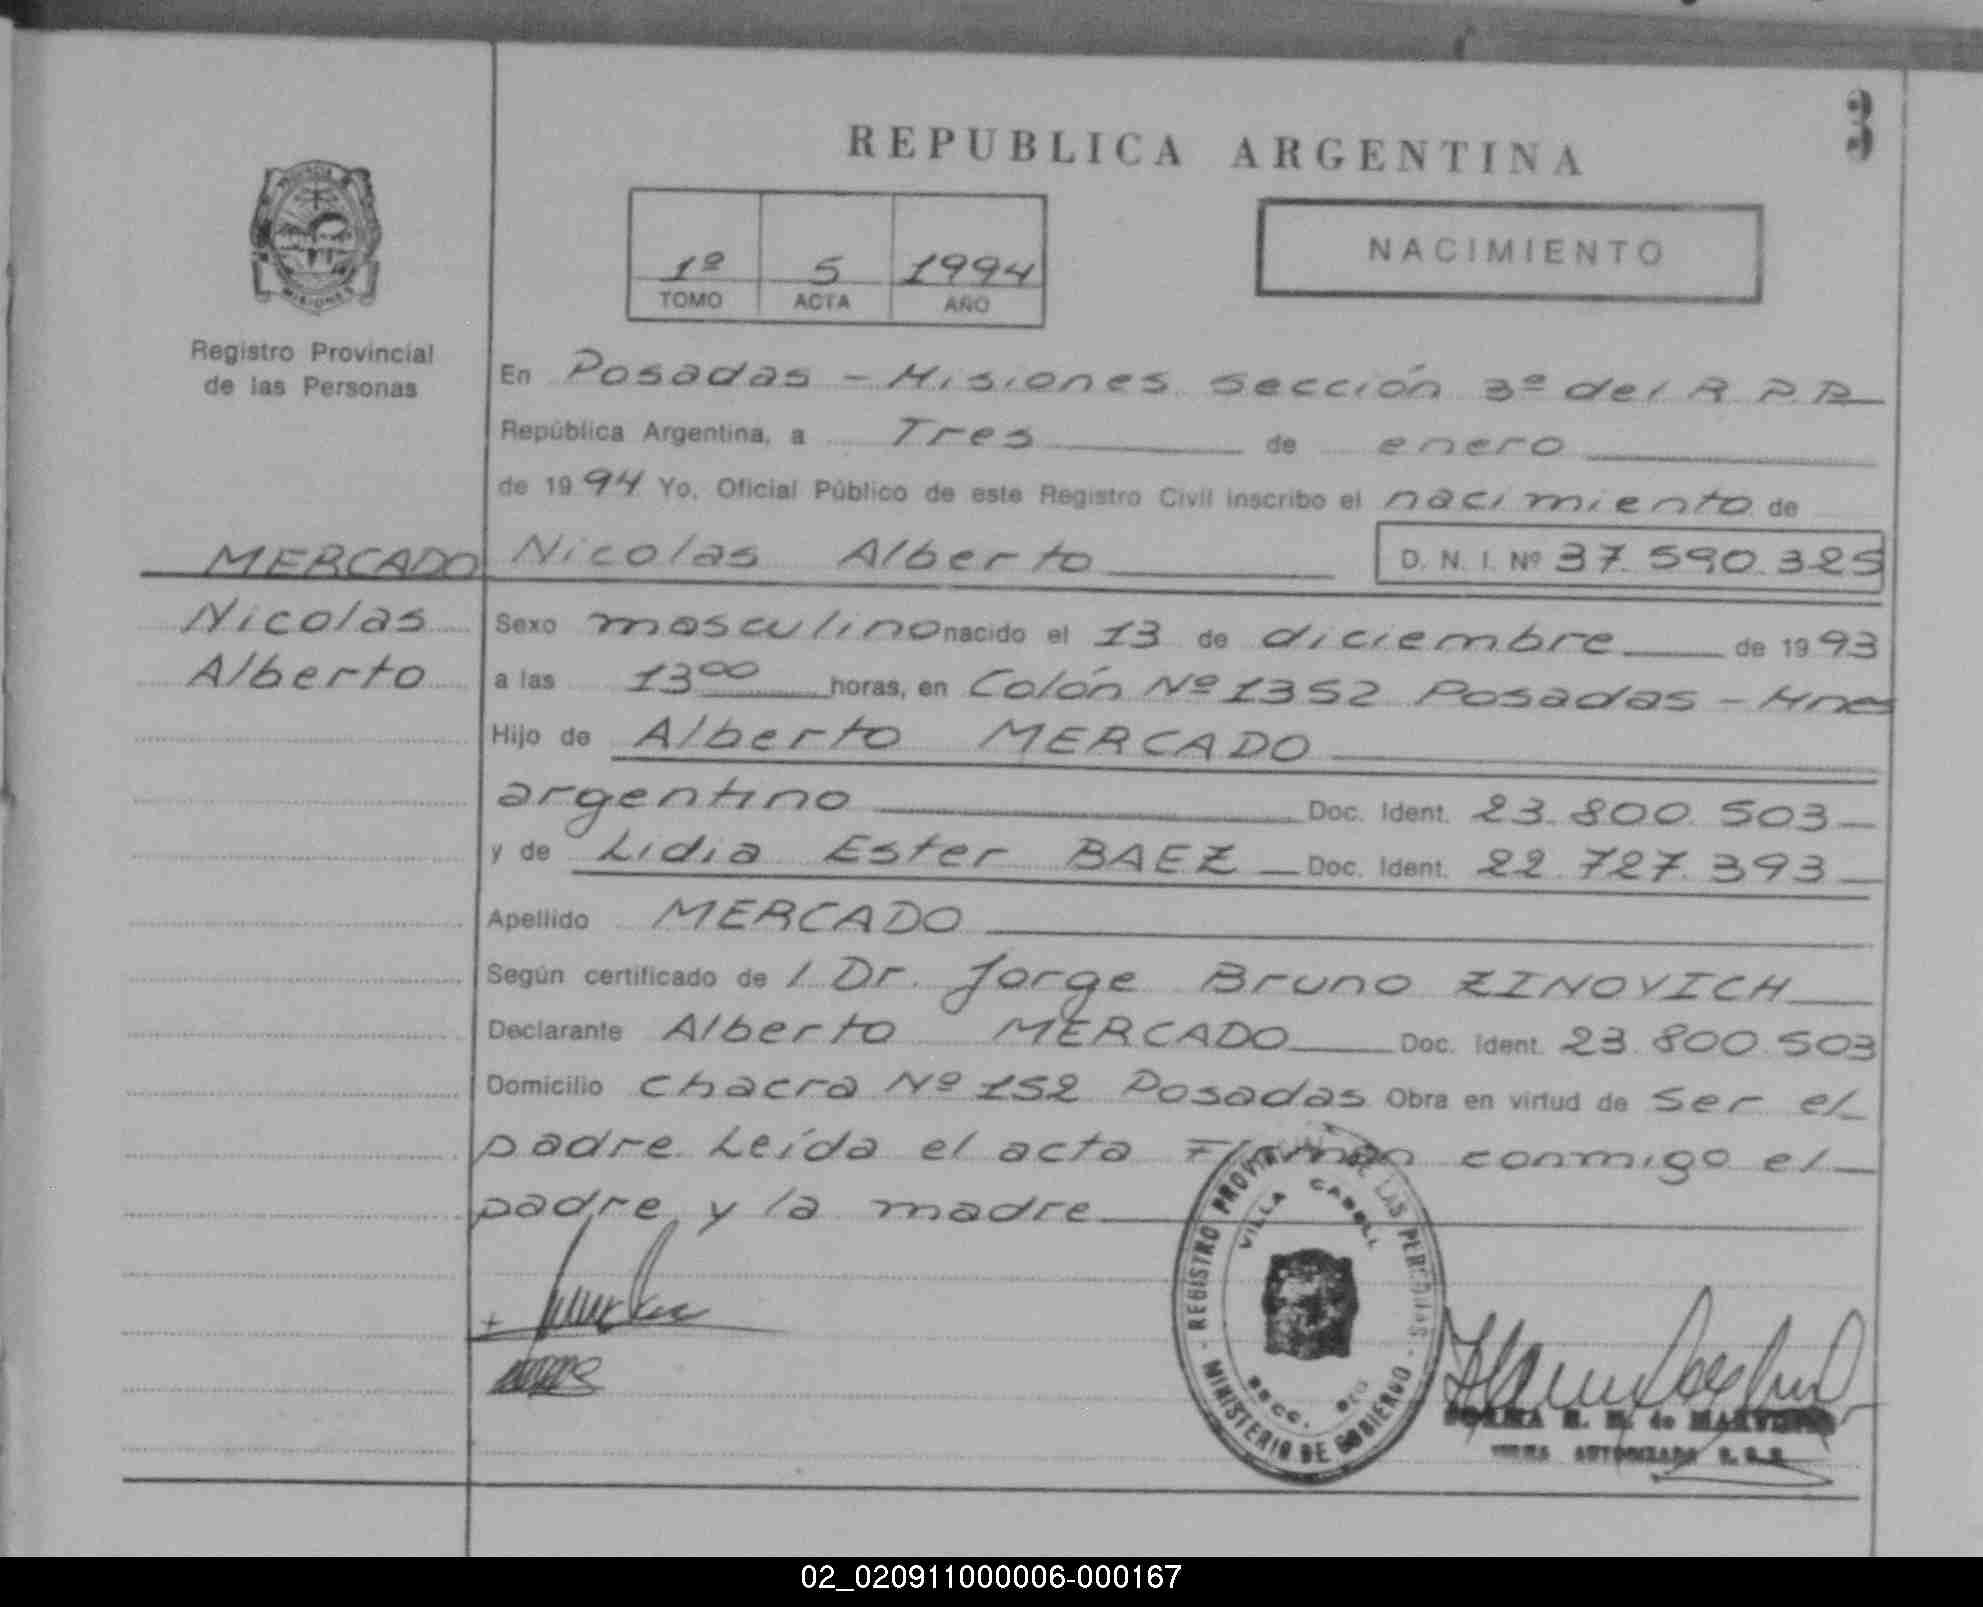 3
REPUBLICA ARGENTINA
NACIMIENTO
1º 5 1994
TOMO ACTA AÑO
MISIONES
Registro Provincial
de las Personas
En Posadas - Misiones Sección 3ª del R.P.P.
República Argentina, a Tres de enero
de 1994 Yo, Oficial Público de este Registro Civil inscribo el nacimiento de
MERCADO Nicolas Alberto D. N. I. Nº 37.590.325
Nicolas
Alberto
Sexo masculino nacido el 13 de diciembre de 1993
a las 13 00 horas, en Colón Nº 1352 Posadas - Mnes
Hijo de Alberto MERCADO
argentino Doc. Ident. 23.800.503
y de Lidia Ester BAEZ Doc. Ident. 22.727.393
Apellido MERCADO
Según certificado de / Dr. Jorge Bruno ZINOVICH
Declarante Alberto MERCADO Doc. Ident. 23.800.503
Domicilio Chacra Nº 152 Posadas Obra en virtud de ser el
padre. Leída el acta Firman conmigo el
padre y la madre
REGISTRO PROVINCIAL DE LAS PERSONAS
VILLA CABELLO
SECC.
MINISTERIO DE GOBIERNO
de
FIRMA AUTORIZADA
02_020911000006-000167